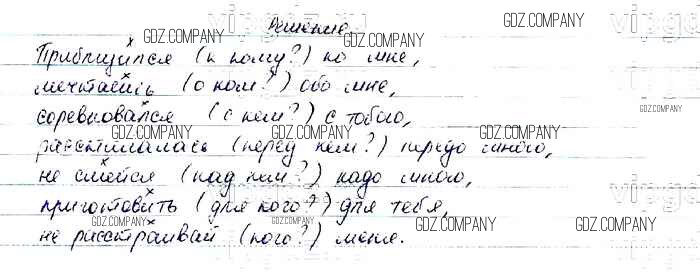 Решение
Приблизился (к кому?) ко мне,
мечтаешь (о ком?) обо мне,
соревновался (с кем?) с тобою,
расстилалась (перед кем?) передо мною,
не смейся (над кем?) надо мною,
приготовить (для кого?) для тебя,
не расстраивай (кого?) меня.
GDZ.COMPANY
GDZ.COMPANY
GDZ.COMPANY
GDZ.COMPANY
GDZ.COMPANY
GDZ.COMPANY
GDZ.COMPANY
GDZ.COMPANY
GDZ.COMPANY
GDZ.COMPANY
GDZ.COMPANY
GDZ.COMPANY
GDZ.COMPANY
GDZ.COMPANY